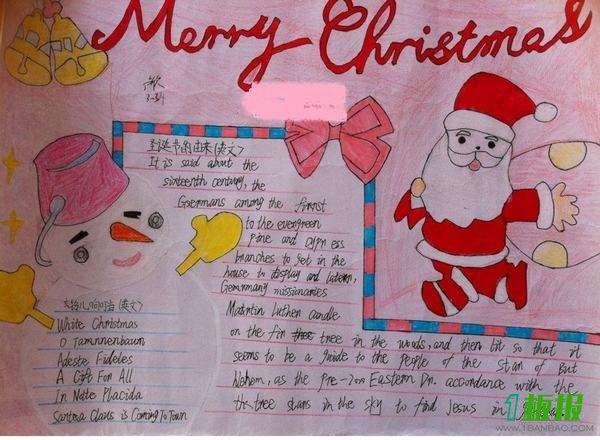 Merry Christmas
圣诞节的由来(英文)
It is said about the
sixteenth century, the
Germans among the first
to the evergreen
Pine and cypress
branches to set in the
house in display and latern,
Germmang missionaries
Martin Luther candle
on the fir thee tree in the woods, and then lit so that it
seems to be a guide to the people of the stan of But
as the Pre-
Eastern Dn. accordance with the
tree stars in the sky to find Jesus in
(英文)
White Christmas
O Tannnenbaum
Adeste Fideles
A Gift For All
In Notte Placida
Santosa Claus is Coming To Town
1板报
WWW.1BANBAO.COM